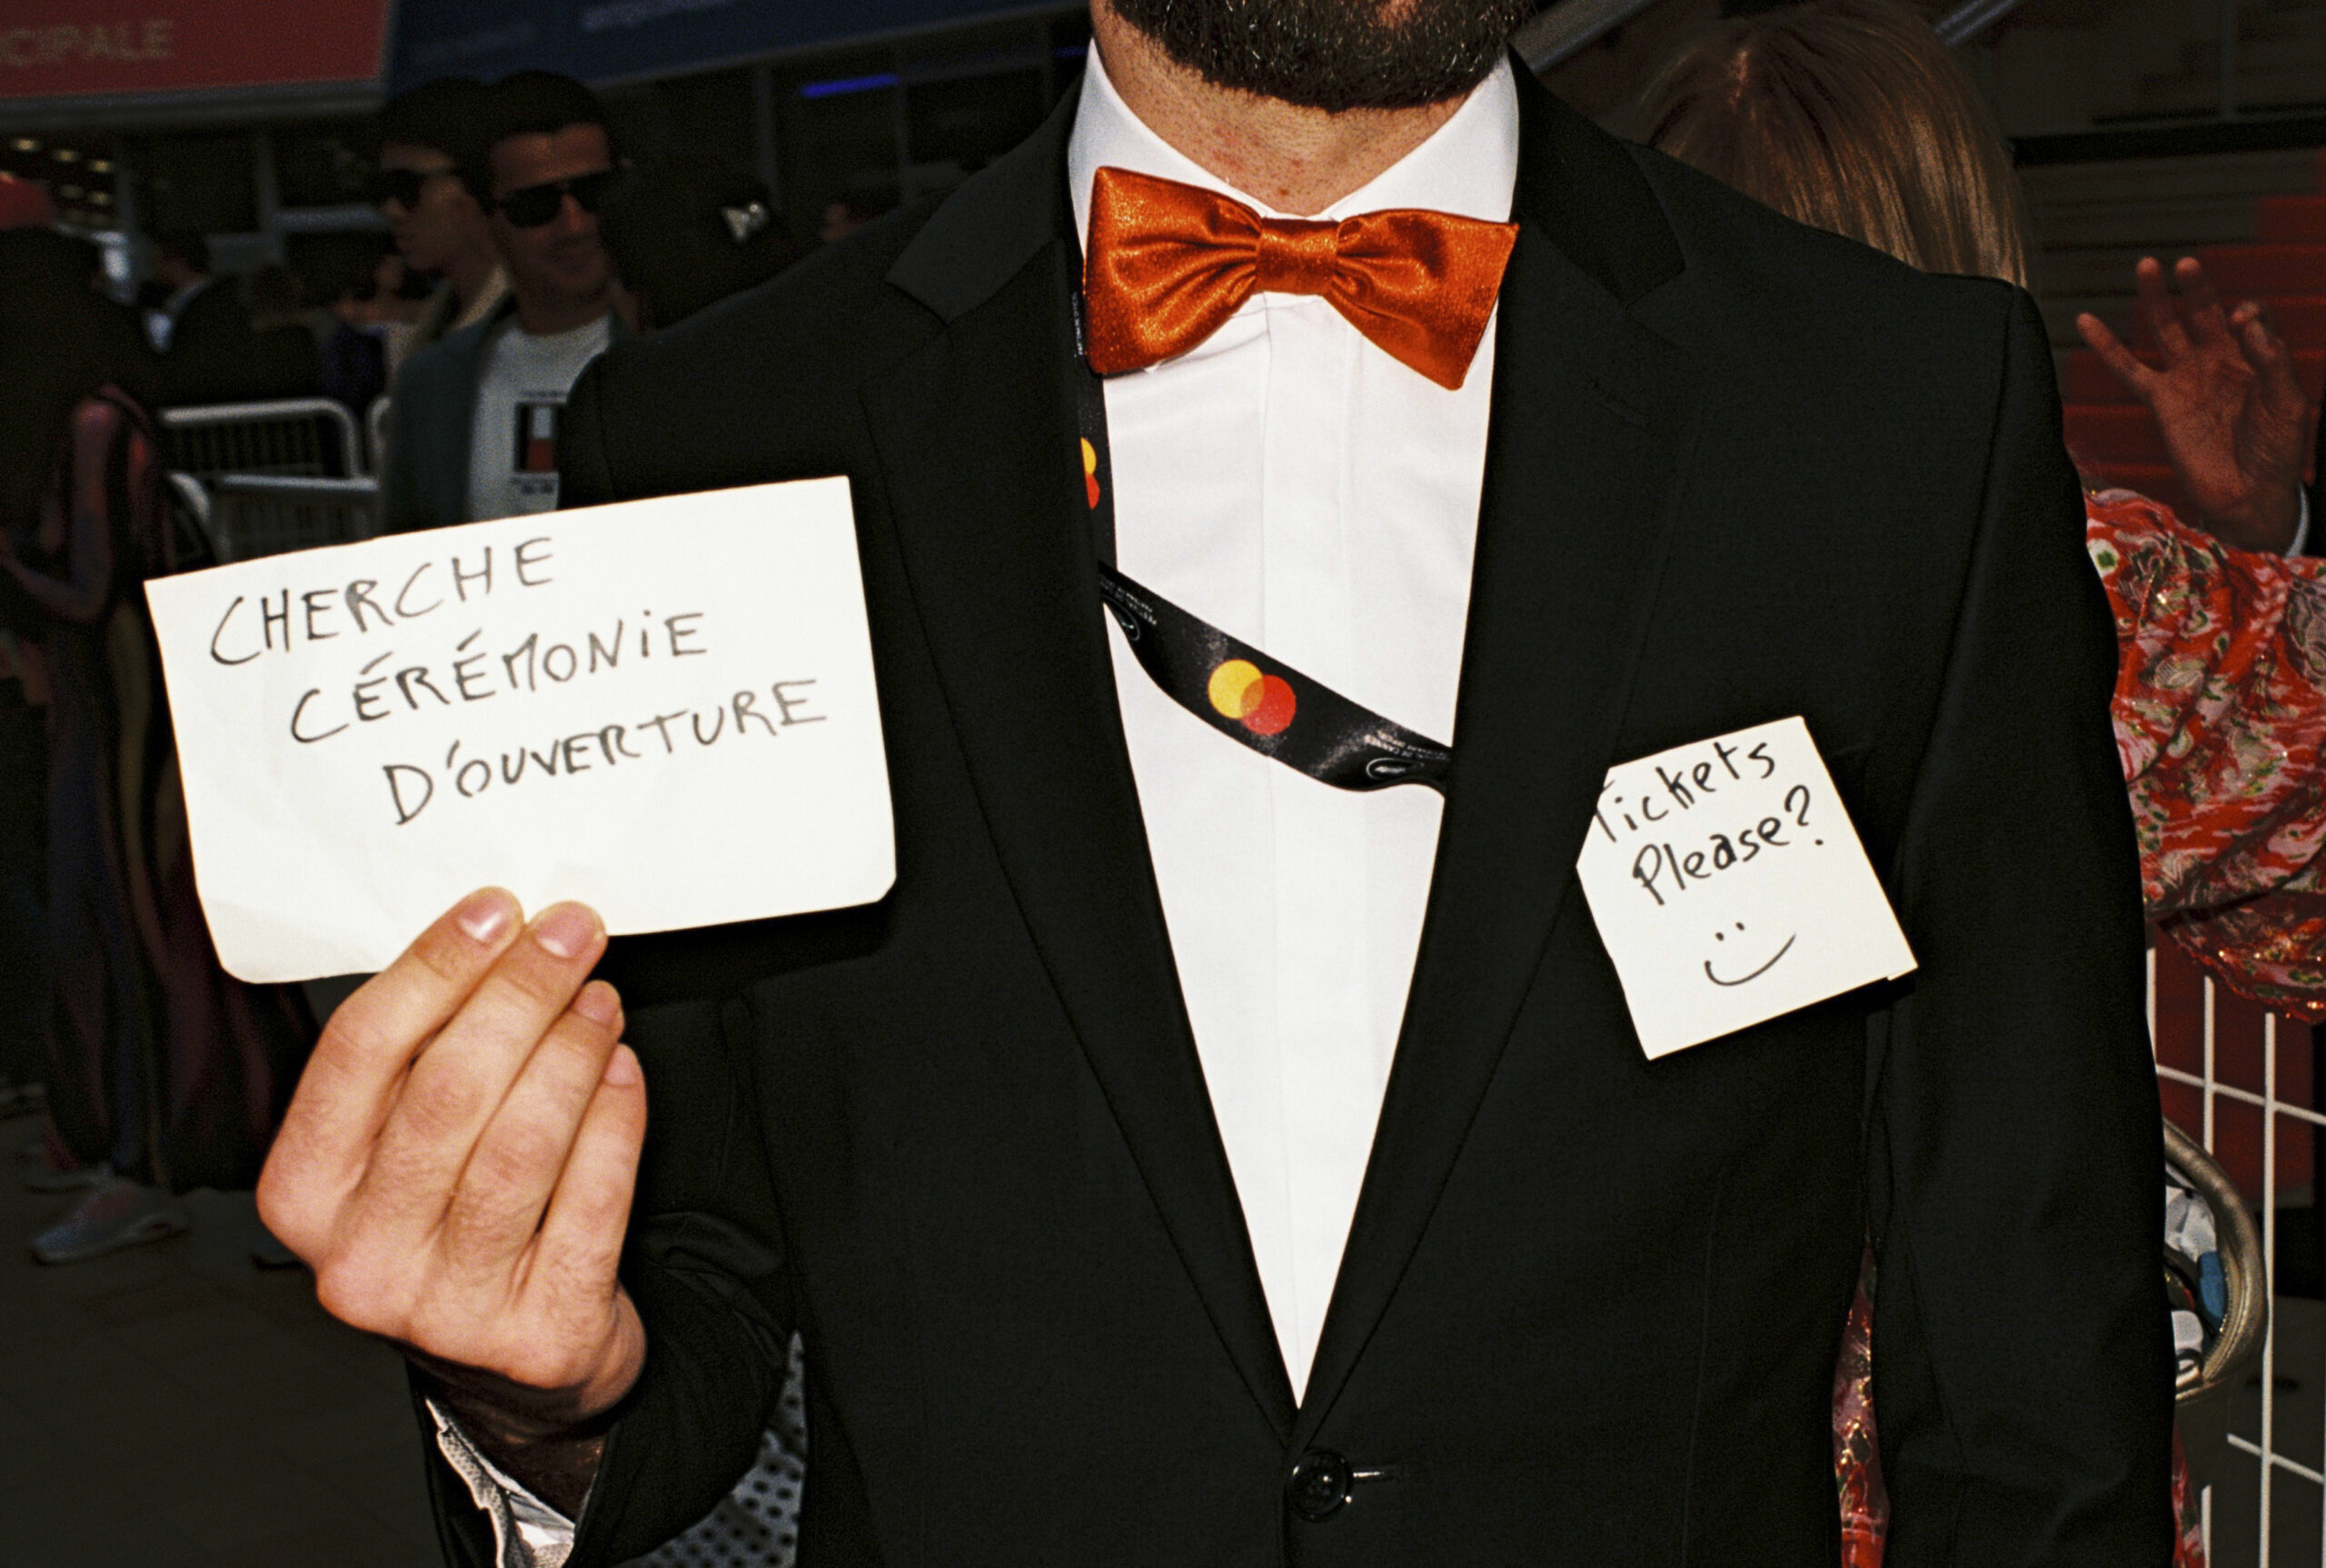 CIPALE
CHERCHE
CÉRÉMONiE
D'OUVERTURE
Tickets
Please?